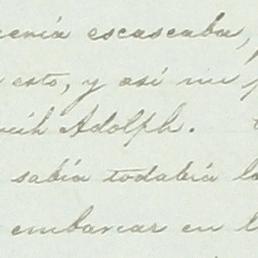 escaseaba,
esto, y así mi
Adolph.
sabía todabía
embarcar en